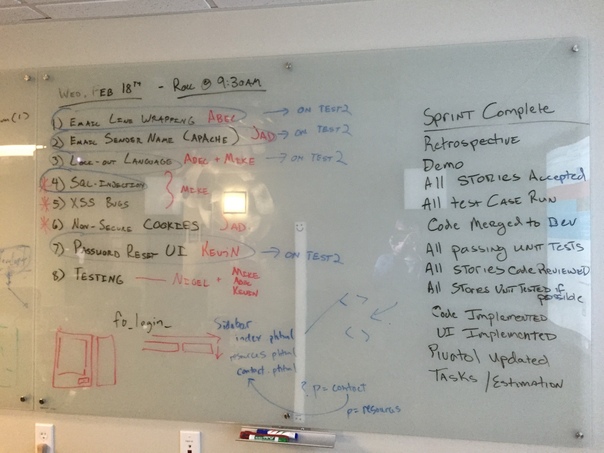 WED. FEB 18TH - ROLL @ 9:30AM
1) EMAIL LINE WRAPPING ABEL → ON TEST2
2) EMAIL SENDER NAME (APACHE) JAD → ON TEST2
3) LOCK-OUT LANGUAGE ABEL + MIKE → ON TEST2
* 4) SQL-INJECTION
MIKE
* 5) XSS BUGS
* 6) NON-SECURE COOKIES JAD
7) PASSWORD RESET UI KEVIN → ON TEST2
8) TESTING — NIGEL + MIKE
ABEL
KEVIN
fo_login_
Sidebar
index.phtml
resources.phtml
contact.phtml
< >
< >
? p=contact
p=resources
SPRINT COMPLETE
Retrospective
Demo
All STORIES Accepted
All test CASE RUN
Code Merged to Dev
All passing UNIT TESTS
All STORIES CODE REVIEWED
All STORIES UNIT TESTED if possible
Code Implemented
UI Implemented
Pivotal Updated
TASKS / ESTIMATION